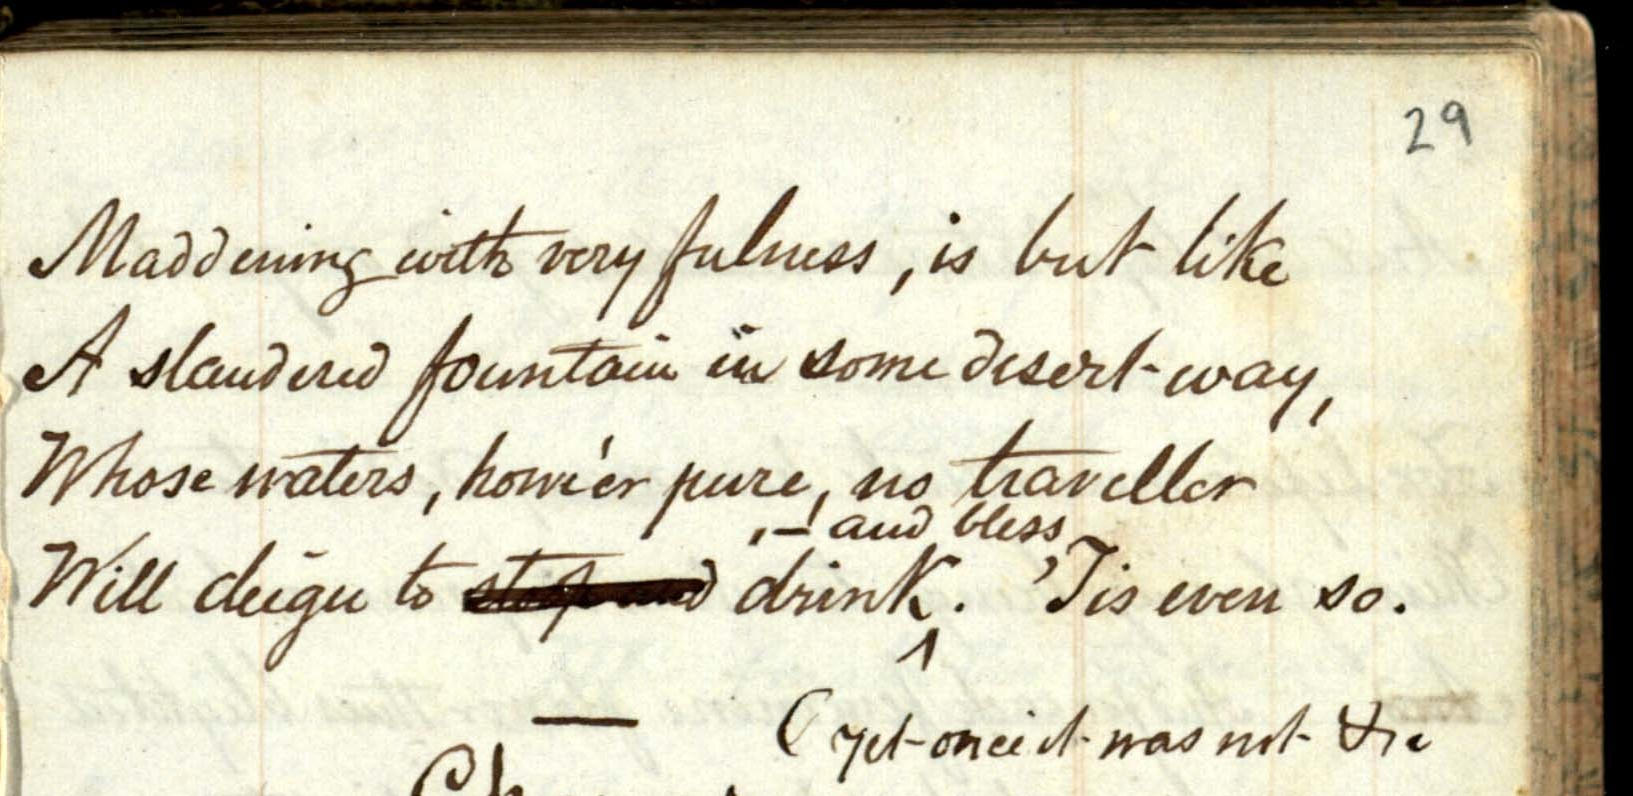 29
Maddening with very fulness, is but like
A slandered fountain in some desert-way,
Whose waters, howe'er pure, no traveller
,– and bless
Will deign to stop and drink. 'Tis even so.
(yet once it was not &c